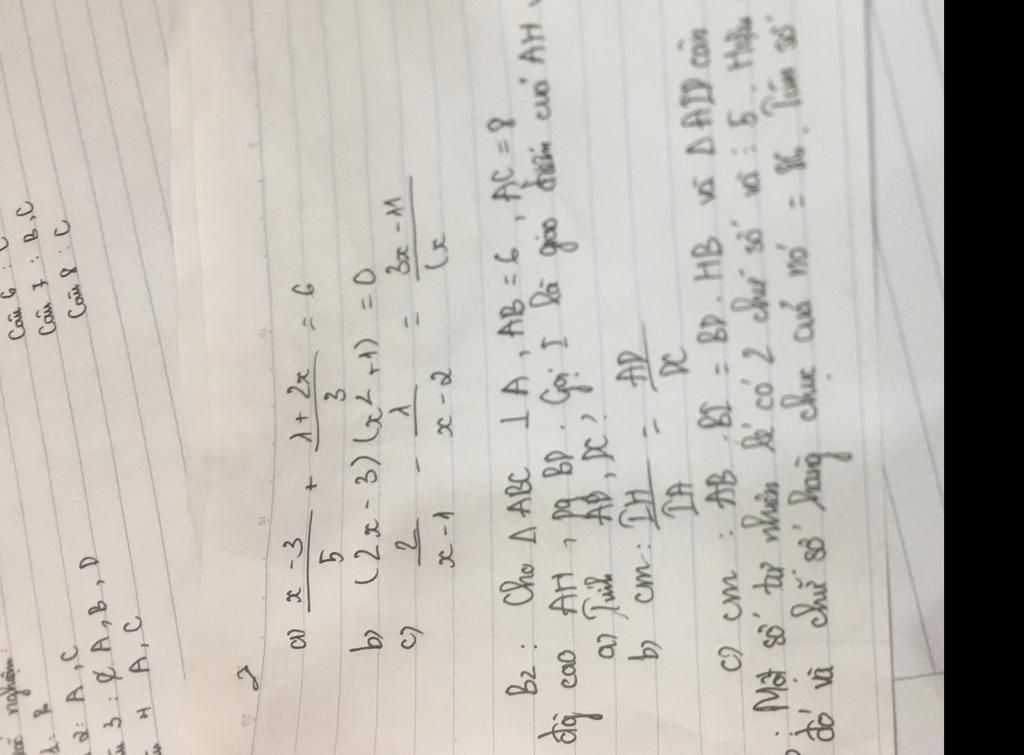 nghiệm:
1: B
2: A, C
3: A, B, D
4 A, C
Câu 6 : C
Câu 7 : B, C
Câu 8 : C
a) x - 3 / 5 + 1 + 2x / 3 = 6
b) (2x - 3)(x² + 1) = 0
c) 2 / x - 1 - 1 / x - 2 = 3x - 11 / (x
B2: Cho Δ ABC ⊥ A, AB = 6, AC = 8
đg cao AH, pg BD. Gọi I là giao điểm của AH
a) Tính AD, DC?
b) cm: IH / IA = AD / DC
c) cm: AB . BI = BD . HB và Δ AID cân
: Một số tự nhiên lẻ có 2 chữ số và : 5. Hiệu
đó và chữ số hàng chục của nó = 86. Tìm số